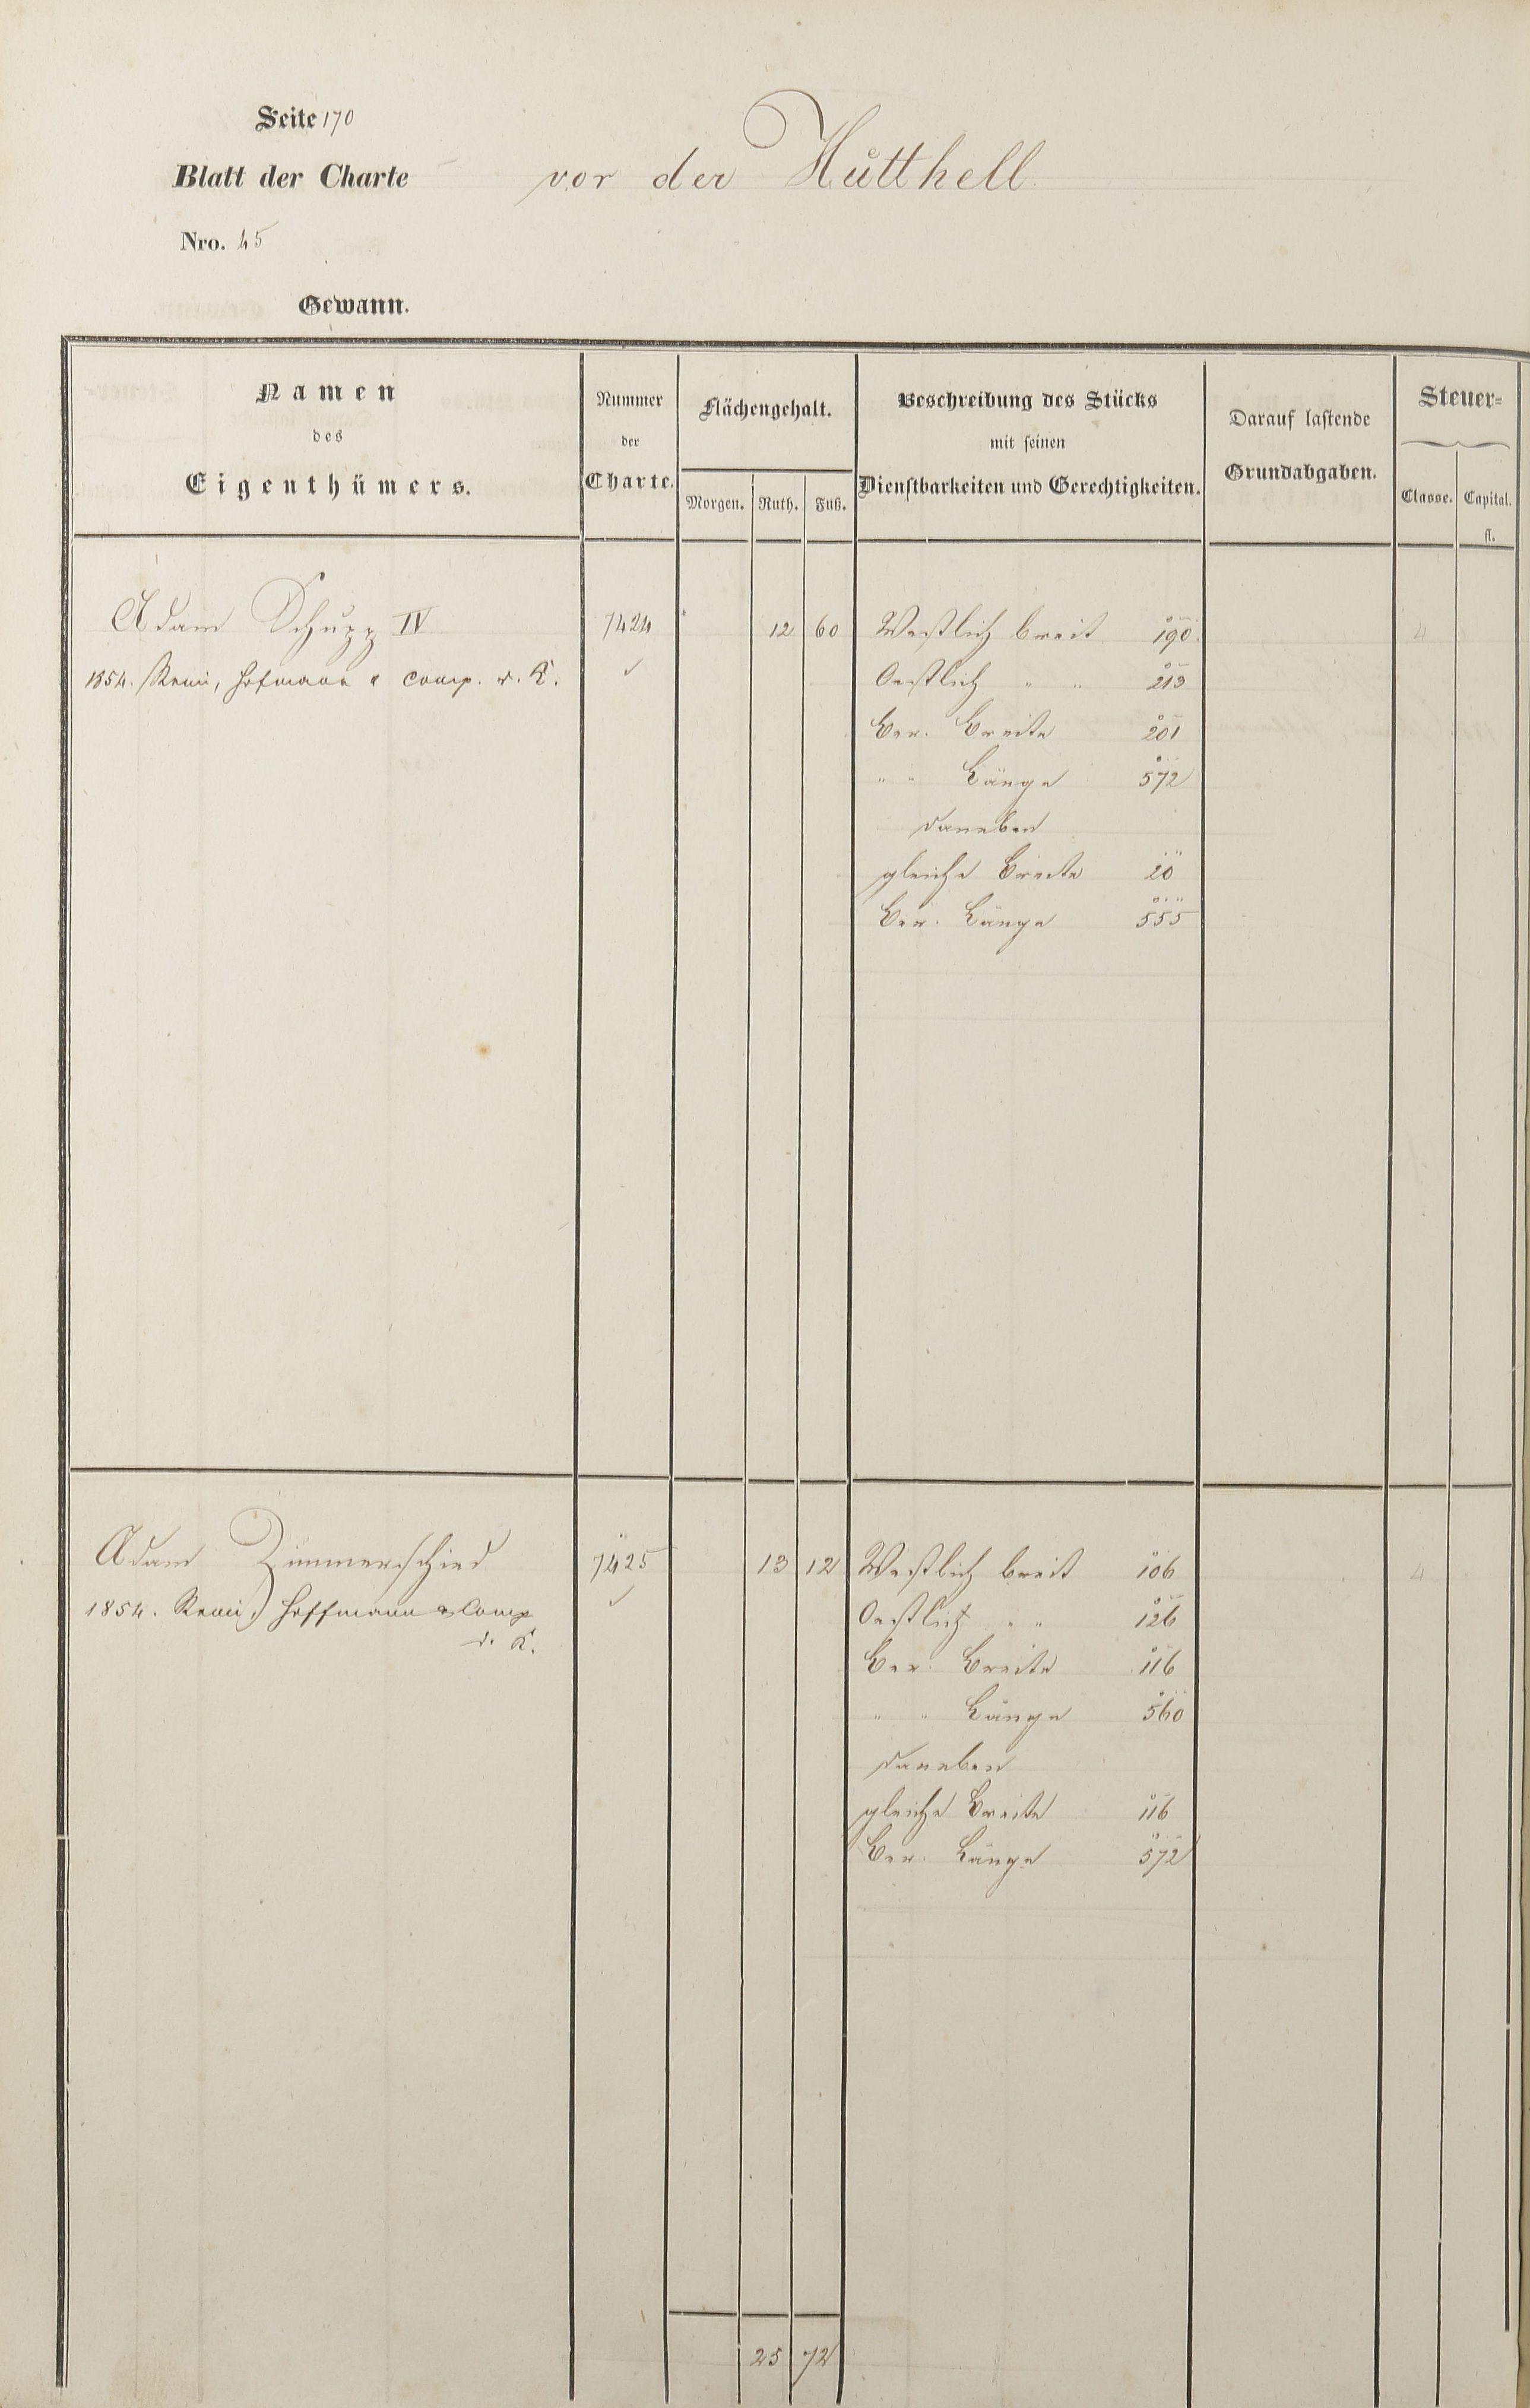 Seite 170
Blatt der Charte vor der Hütthell
Nro. 45
Gewann.
Namen des Eigenthümers.
Nummer der Charte.
Flächengehalt.
Morgen. Ruth. Fuß.
Beschreibung des Stücks
mit seinen
Dienstbarkeiten und Gerechtigkeiten.
Darauf lastende
Grundabgaben.
Steuer=
Classe. Capital.
fl.
Adam Schupp IV 7424 12 60 Westlich breit 190 4
1854. Remi, Hofmann & Comp. v. K. ✓ Oestlich " " 213
Ber. Breite 201
" " Länge 572
daneben
gleiche Breite 20
Ber. Länge 555
Adam Zimmerschied 7425 13 12 Westlich breit 106 4
1854. Remi, Hoffmann & Comp ✓ Oestlich " " 126
v. K.
Ber. Breite 116
" " Länge 560
daneben
gleiche Breite 116
Ber. Länge 572
25 72